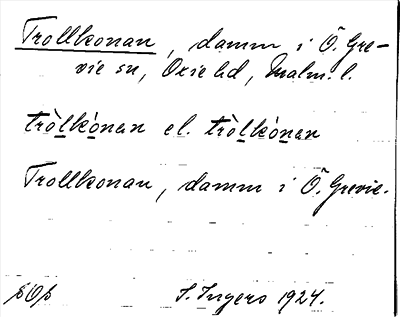 Trollkonan, damm i Ö. Gre-
vie sn, Oxie hd, Malm. l.
tròlkónan el. tròlkónan
Trollkonan, damm i Ö. Grevie.
pOp I. Ingers 1924.